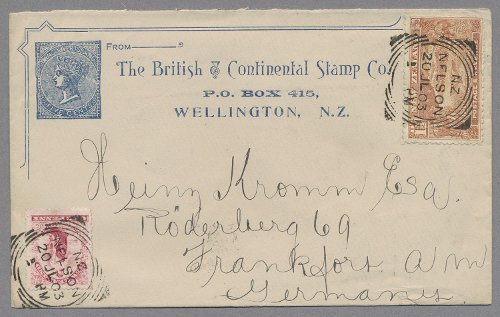 FROM
The British & Continental Stamp Co.
P.O. BOX 415,
WELLINGTON, N.Z.
N.Z.
NELSON
20 JL 03
PM
Heinz Kromm Esq.
Röderberg 69
Frankfort a/m
Germany
N.Z.
NELSON
20 JL 03
PM